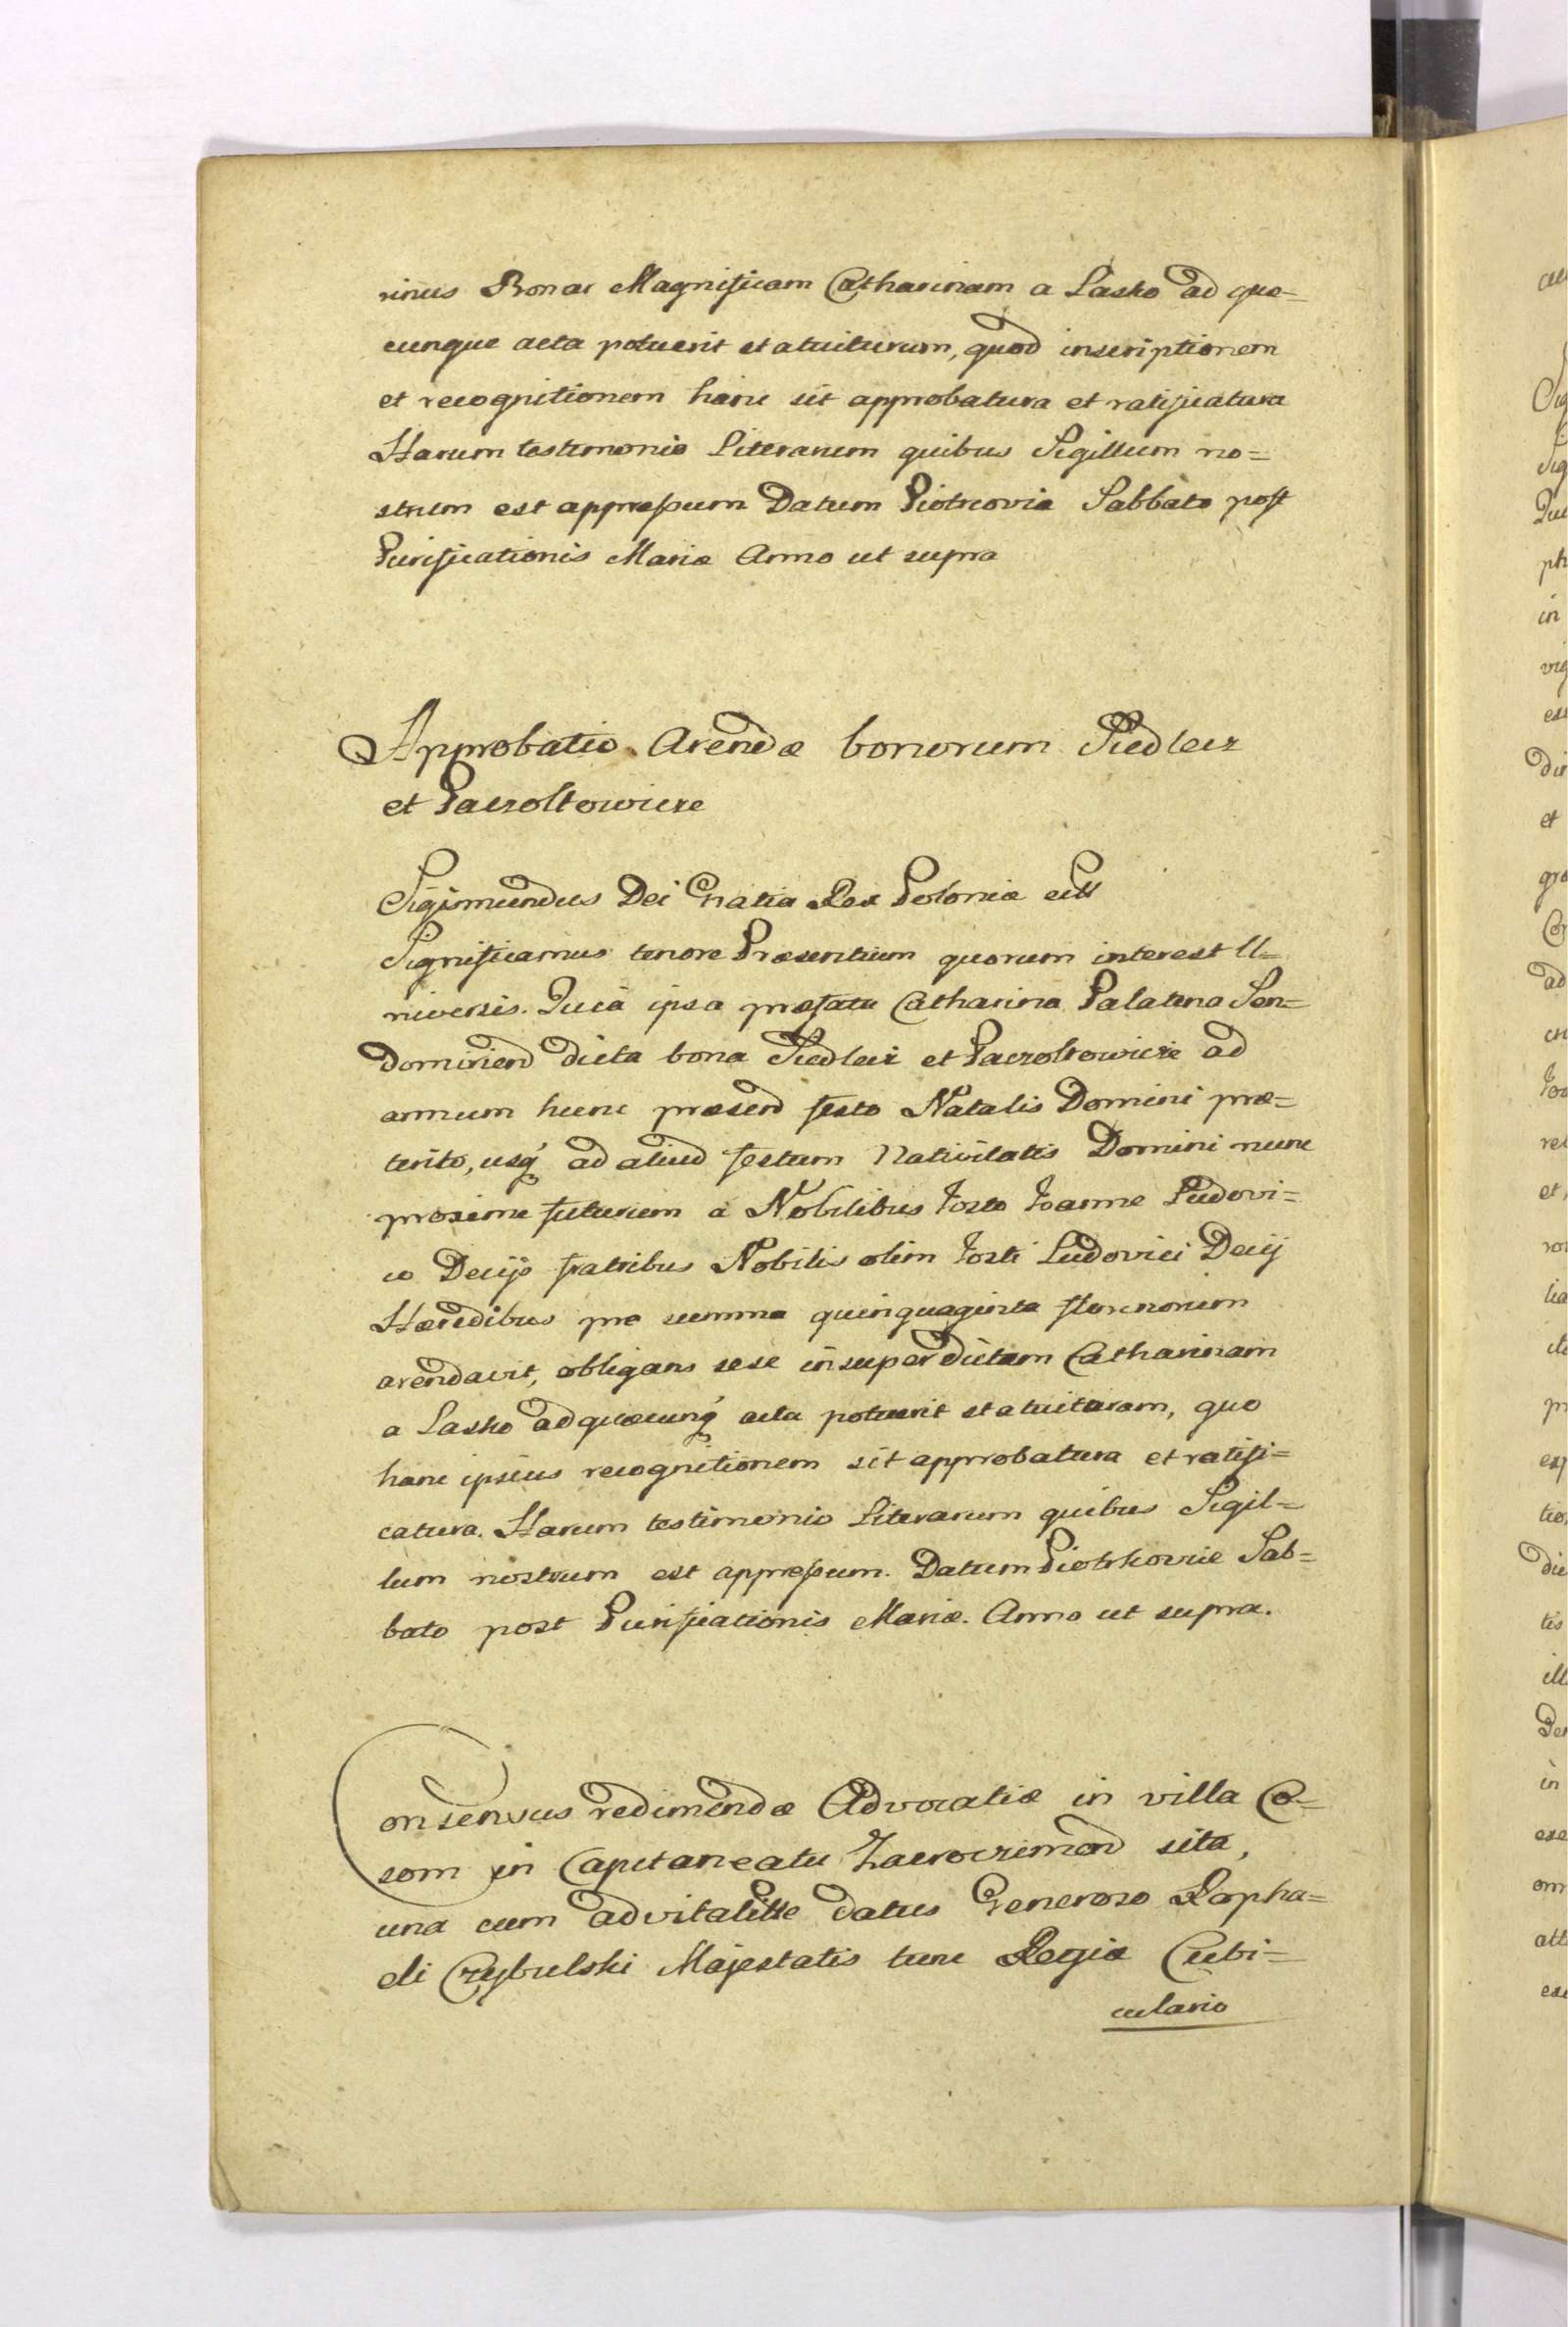 rinus Bonar Magnificam Catharinam a Lasko ad que=
cunque acta potuerit statuiturum, quod inscriptionem
et recognitionem hanc sit approbatura et ratificatura
Harum testimonio Literarum quibus Sigillum no=
strum est appressum Datum Piotrcovia Sabbato post
Purificationis Mariæ Anno ut supra
Approbatio Arendæ bonorum Siedlecz
et Paczoltowicze
Sigismundus Dei Gratia Rex Poloniæ ett
Significamus tenore Præsentium quorum interest U=
niversis. Quia ipsa præfata Catharina Palatina Sen=
domiriend dicta bona Siedlecz et Paczoltowicze ad
annum hunc præsend festo Natalis Domini præ=
terito, usq́ ad aliud festum Nativitatis Domini nunc
proxime futurum a Nobilibus Josto Joanne Ludovi=
co Decijs fratribus Nobilis olim Josti Ludovici Decij
Hæredibus pro summa quinquaginta florenorum
arendavit, obligans sese insuper dictam Catharinam
a Lasko ad quæcunq́ acta potuerit statuituram, quo
hanc ipsius recognitionem sit approbatura et ratifi=
catura. Harum testimonio Literarum quibus Sigil=
lum nostrum est appressum. Datum Piotrkoviæ Sab=
bato post Purificationis Mariæ. Anno ut supra.
Consensus redimendæ Advocatiæ in villa Co=
som in Capitaneatu Zacroczimond sita,
una cum advitalitte datus Generoso Rapha=
eli Czybulski Majestatis tunc Regiæ Cubi=
culario